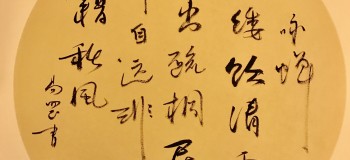 咏蝉
緌饮清
出疏桐居
自远非
藉秋风
书